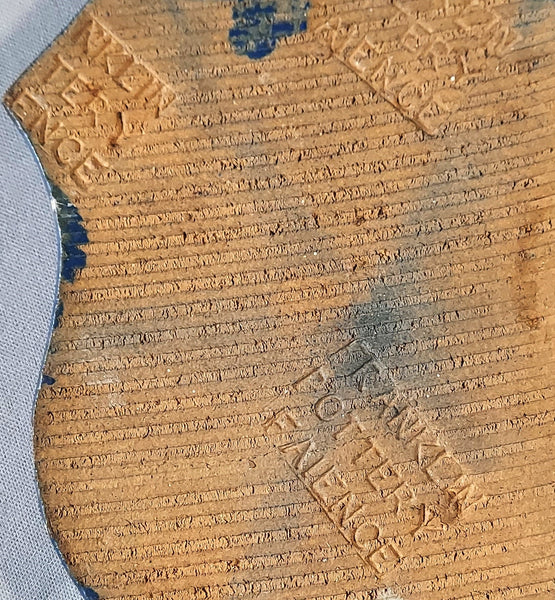 KLIN
TERY
ENCE
ON
ERY
IENCE
FRANKLIN
POTTERY
FAIENCE